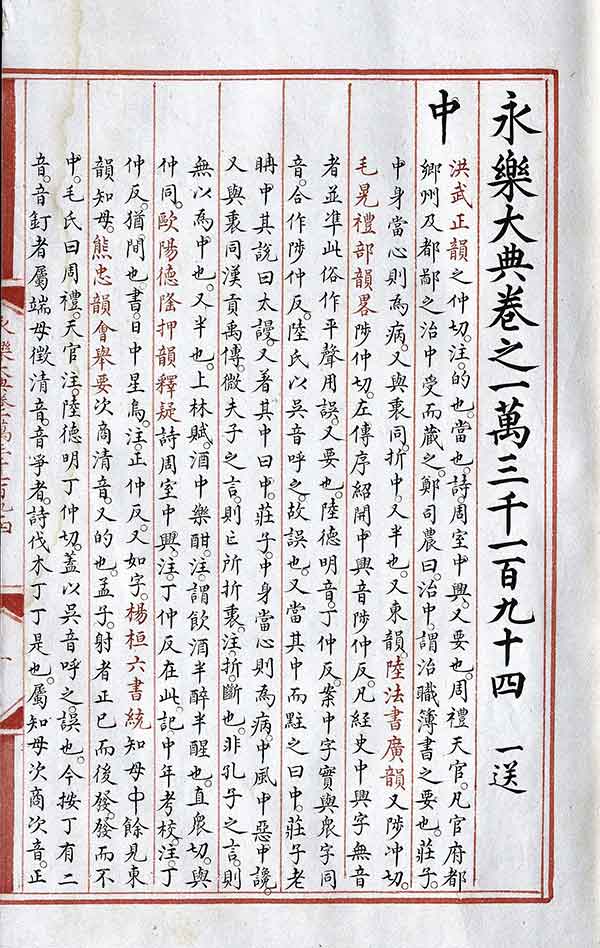 永樂大典卷之一萬三千一百九十四 一送
中
洪武正韻之仲切。注。的也。當也。詩。周室中興。又要也。周禮天官。凡官府都
鄉州及都鄙之治中受而藏之。鄭司農曰。治中。謂治職簿書之要也。莊子。
中身當心則為病。又與衷同。折中。又半也。又東韻。陸法書廣韻又陟冲切。
毛晃禮部韻畧陟仲切。左傳序紹開中興音陟仲反。凡経史中興字無音
者並準此俗作平聲用誤。又要也。陸德明音。丁仲反。案中字實與衆字同
音。合作陟仲反。陸氏以吳音呼之。故誤也。又當其中而㸃之曰中。莊子老
聃中其說曰太謾。又著其中曰中。莊子。中身當心則為病。中風中惡中讒。
又與衷同漢貢禹傳。微夫子之言。則亡所折衷。注。折。斷也。非孔子之言。則
無以為中也。又半也。上林賦。酒中樂酣。注。謂飲酒半醉半醒也。直衆切。與
仲同。歐陽德隆押韻釋疑詩周室中興。注。丁仲反在此。記。中年考校。注。丁
仲反。猶間也。書。日中星鳥。注。正仲反。又如字。楊桓六書統知母中餘見東
韻知母。熊忠韻會舉要次商清音。又的也。孟子。射者正已而後發。發而不
中。毛氏曰周禮。天官注。陸德明丁仲切。蓋以吳音呼之。誤也。今按丁有二
音。音釘者屬端母徵清音。音爭者。詩伐木丁丁是也。屬知母次商次音。正